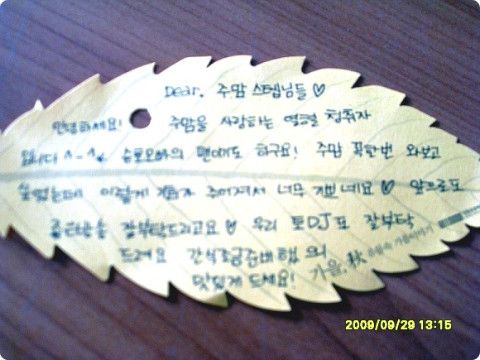 Dear. 주맘 스텝님들♡
안녕하세요! 주맘을 사랑하는 열렬 청취자
입니다 ^-^ 슈로모하의 팬이기도 하구요! 주맘 꼭한번 와보고
싶었는데 이렇게 기회가 주어져서 너무 기쁘네요♡ 앞으로도
좋은방송 잘부탁드리고요♡ 우리 토DJ도 잘부탁
드려요 간식조금준비했으니
맛있게 드세요! 가을, 秋
2009/09/29 13:15